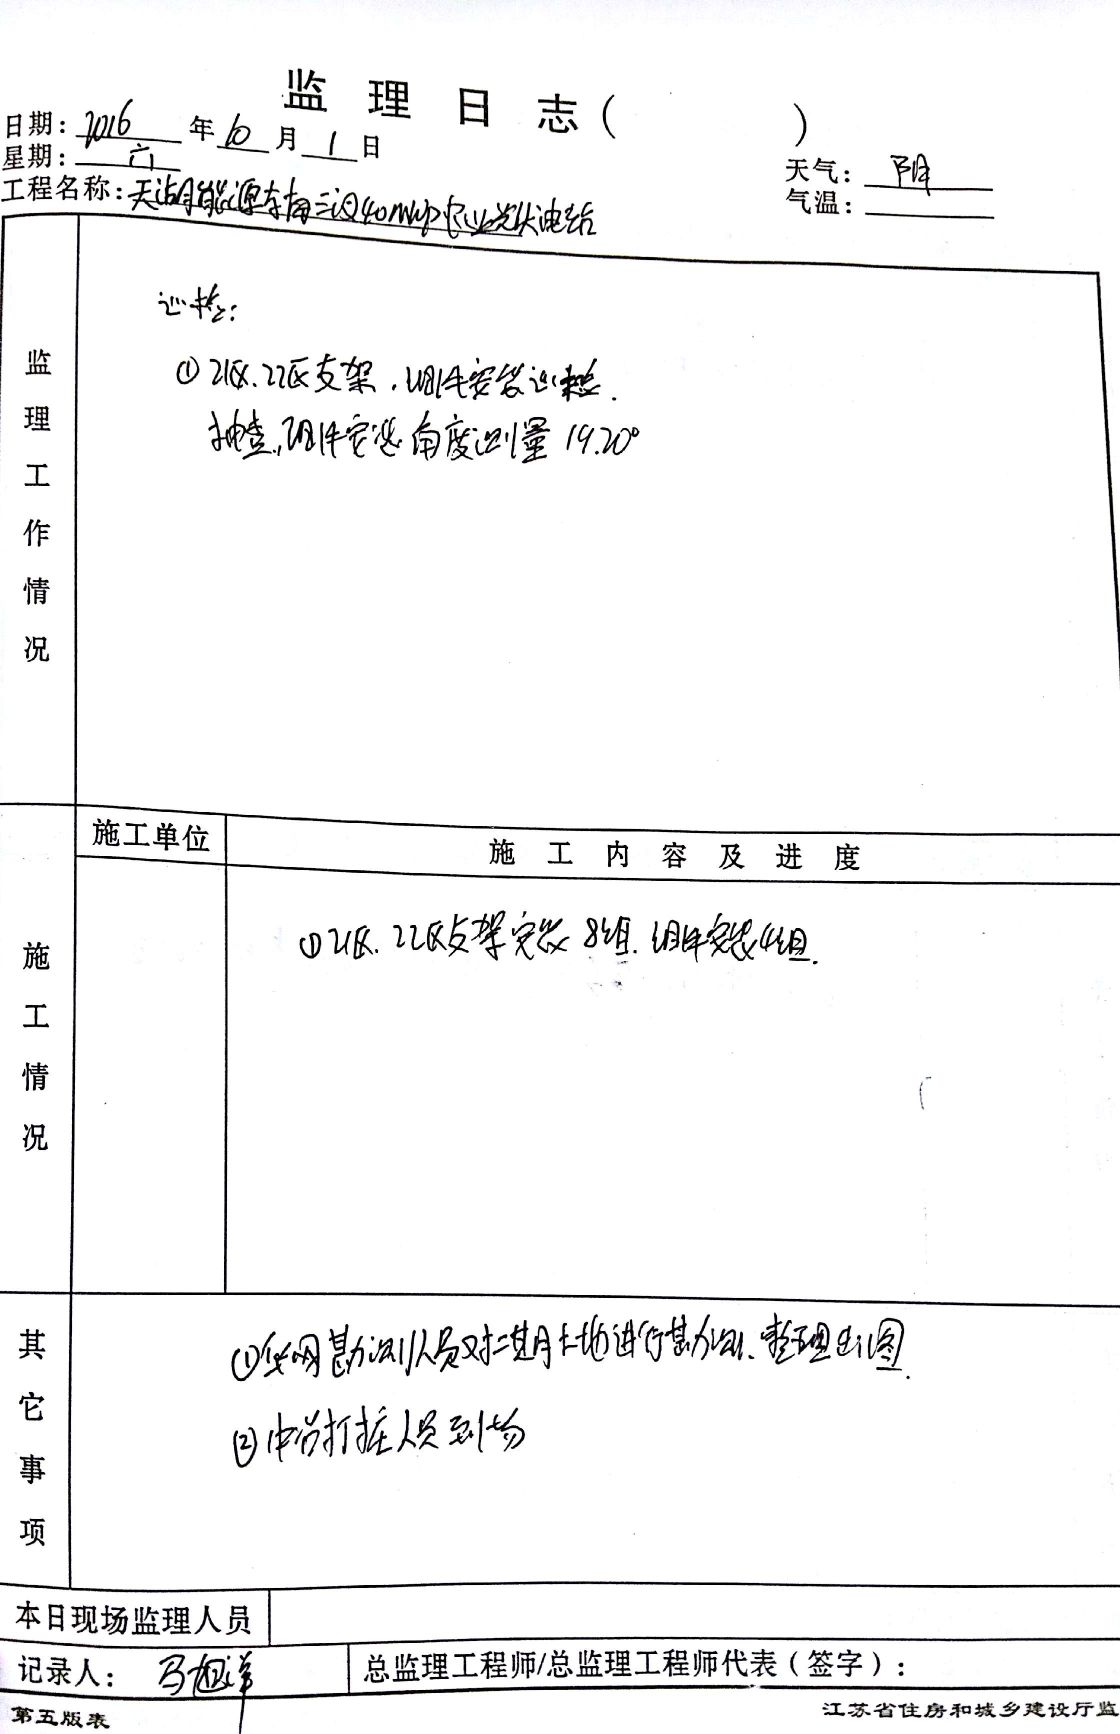 监理日志（ ）
日期：2016年10月1日
星期：六
天气：阴
工程名称：天湖能源 40MWp农业光伏电站
气温：
监理工作情况
巡检：
①21区.22区支架.组件安装巡检.
抽查.组件安装角度测量 19.20°
施工单位
施工内容及进度
施工情况
①21区.22区支架安装 8组.组件安装4组.
其它事项
① 勘测人员对二期土地进行勘测.整理出图.
② 打桩人员到场
本日现场监理人员
记录人：马旭洋
总监理工程师/总监理工程师代表（签字）：
第五版表
江苏省住房和城乡建设厅监